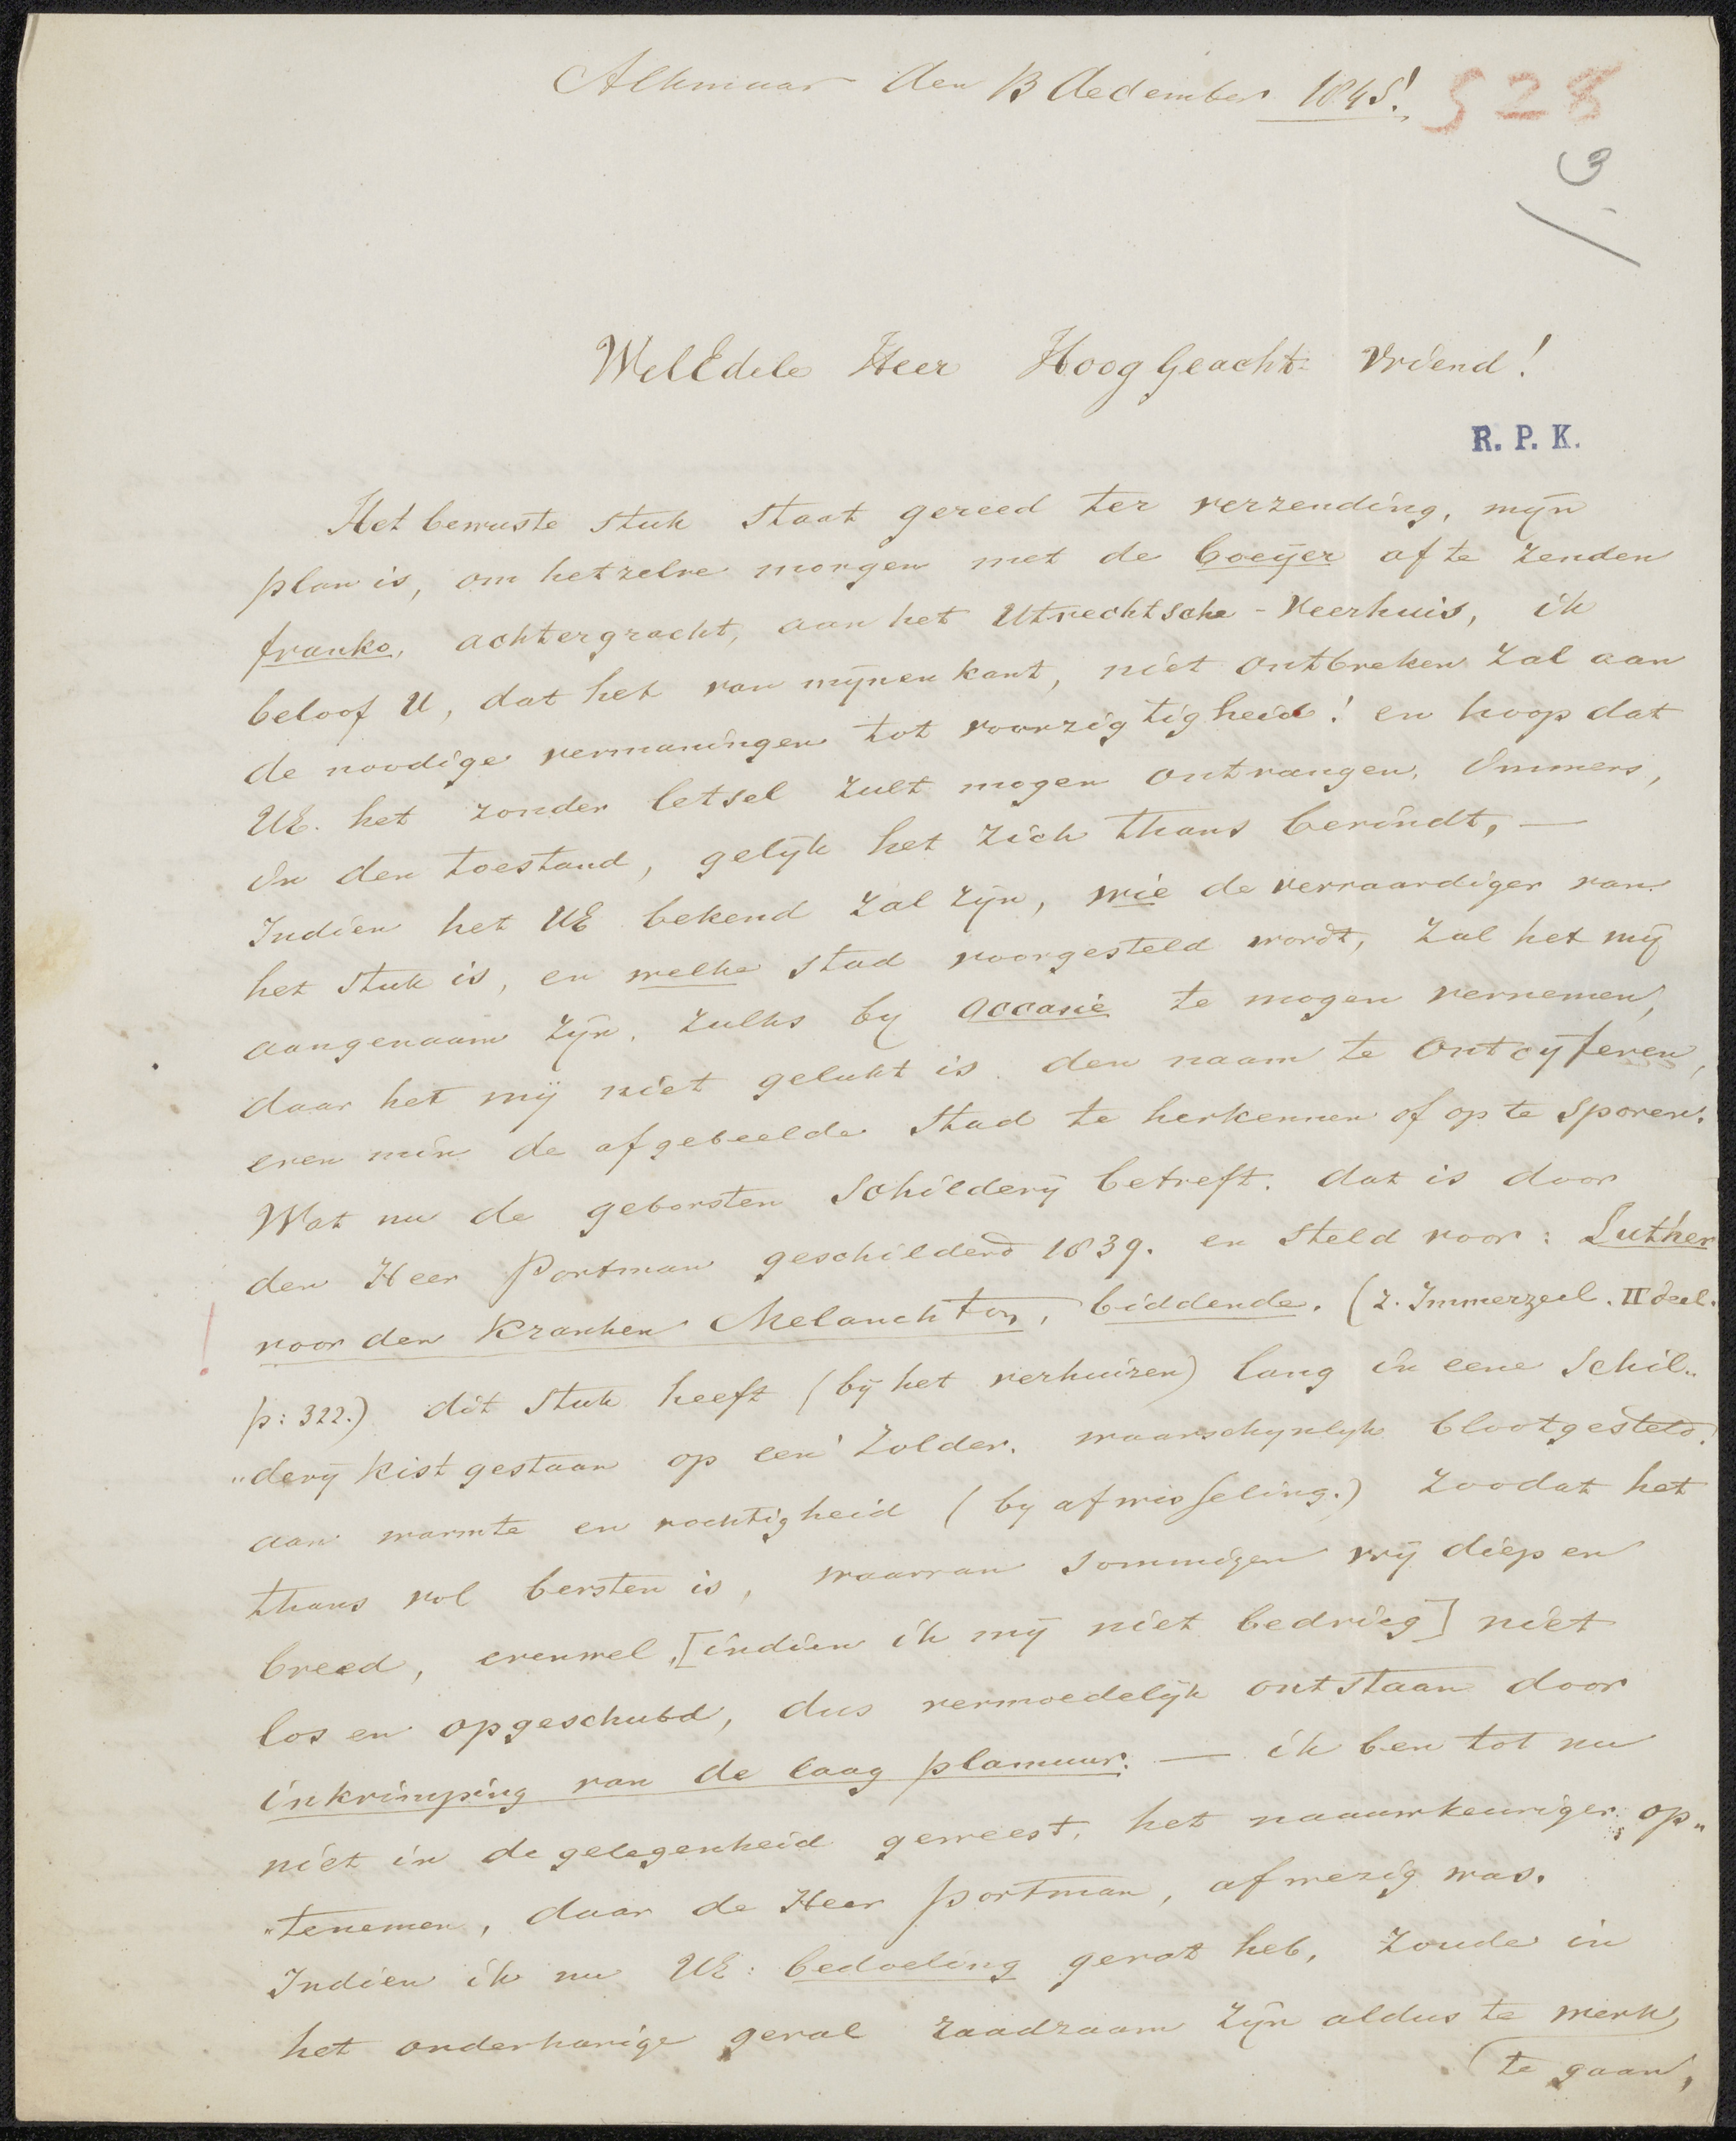 Alkmaar den 13 december 1845!
528
3
WelEdele Heer Hoog Geacht Vriend!
R. P. K.
Het bewuste stuk staat gereed ter verzending, mÿn
plan is, om hetzelve morgen met de boeÿer af te zenden
franko, achtergracht, aan het Utrechtsche-Veerhuis, ik
beloof U, dat het van mÿnen kant, niet ontbreken zal aan
de noodige vermaningen tot voorzigtigheid! en hoop dat
UE. het zonder letsel zult mogen ontvangen. Immers,
in den toestand, gelÿk het zich thans bevindt, —
Indien het UE bekend zal zÿn, wie de vervaardiger van
het stuk is, en welke stad voorgesteld wordt, zal het mÿ
aangenaam zÿn, zulks by occasie te mogen vernemen,
daar het mÿ niet gelukt is den naam te ontcÿferen,
even min de afgebeelde stad te herkennen of op te sporen.
Wat nu de geborsten schilderÿ betreft. dat is door
den Heer Portman geschilderd 1839. en steld voor: Luther
voor den Kranken Melanchton, biddende. (z. Immerzeel. II deel.
p: 322.) dit stuk heeft (bÿ het verhuizen) lang in eene schil„
„derÿ kist gestaan op een zolder. waarschynlyk blootgesteld.
aan warmte en vochtigheid (by afwisseling.) zoodat het
thans vol bersten is, waarvan sommigen vrÿ diep en
breed, evenwel, [indien ik mÿ niet bedrieg] niet
los en opgeschubd, dus vermoedelÿk ontstaan door
inkrimping van de laag plamuur. — ik ben tot nu
niet in de gelegenheid geweest, het naauwkeuriger op„
„tenemen, daar de Heer Portman, afwezig was.
Indien ik nu UE: bedoeling gevat heb, zoude in
het onderhavige geval raadzaam zÿn aldus te werk
te gaan,